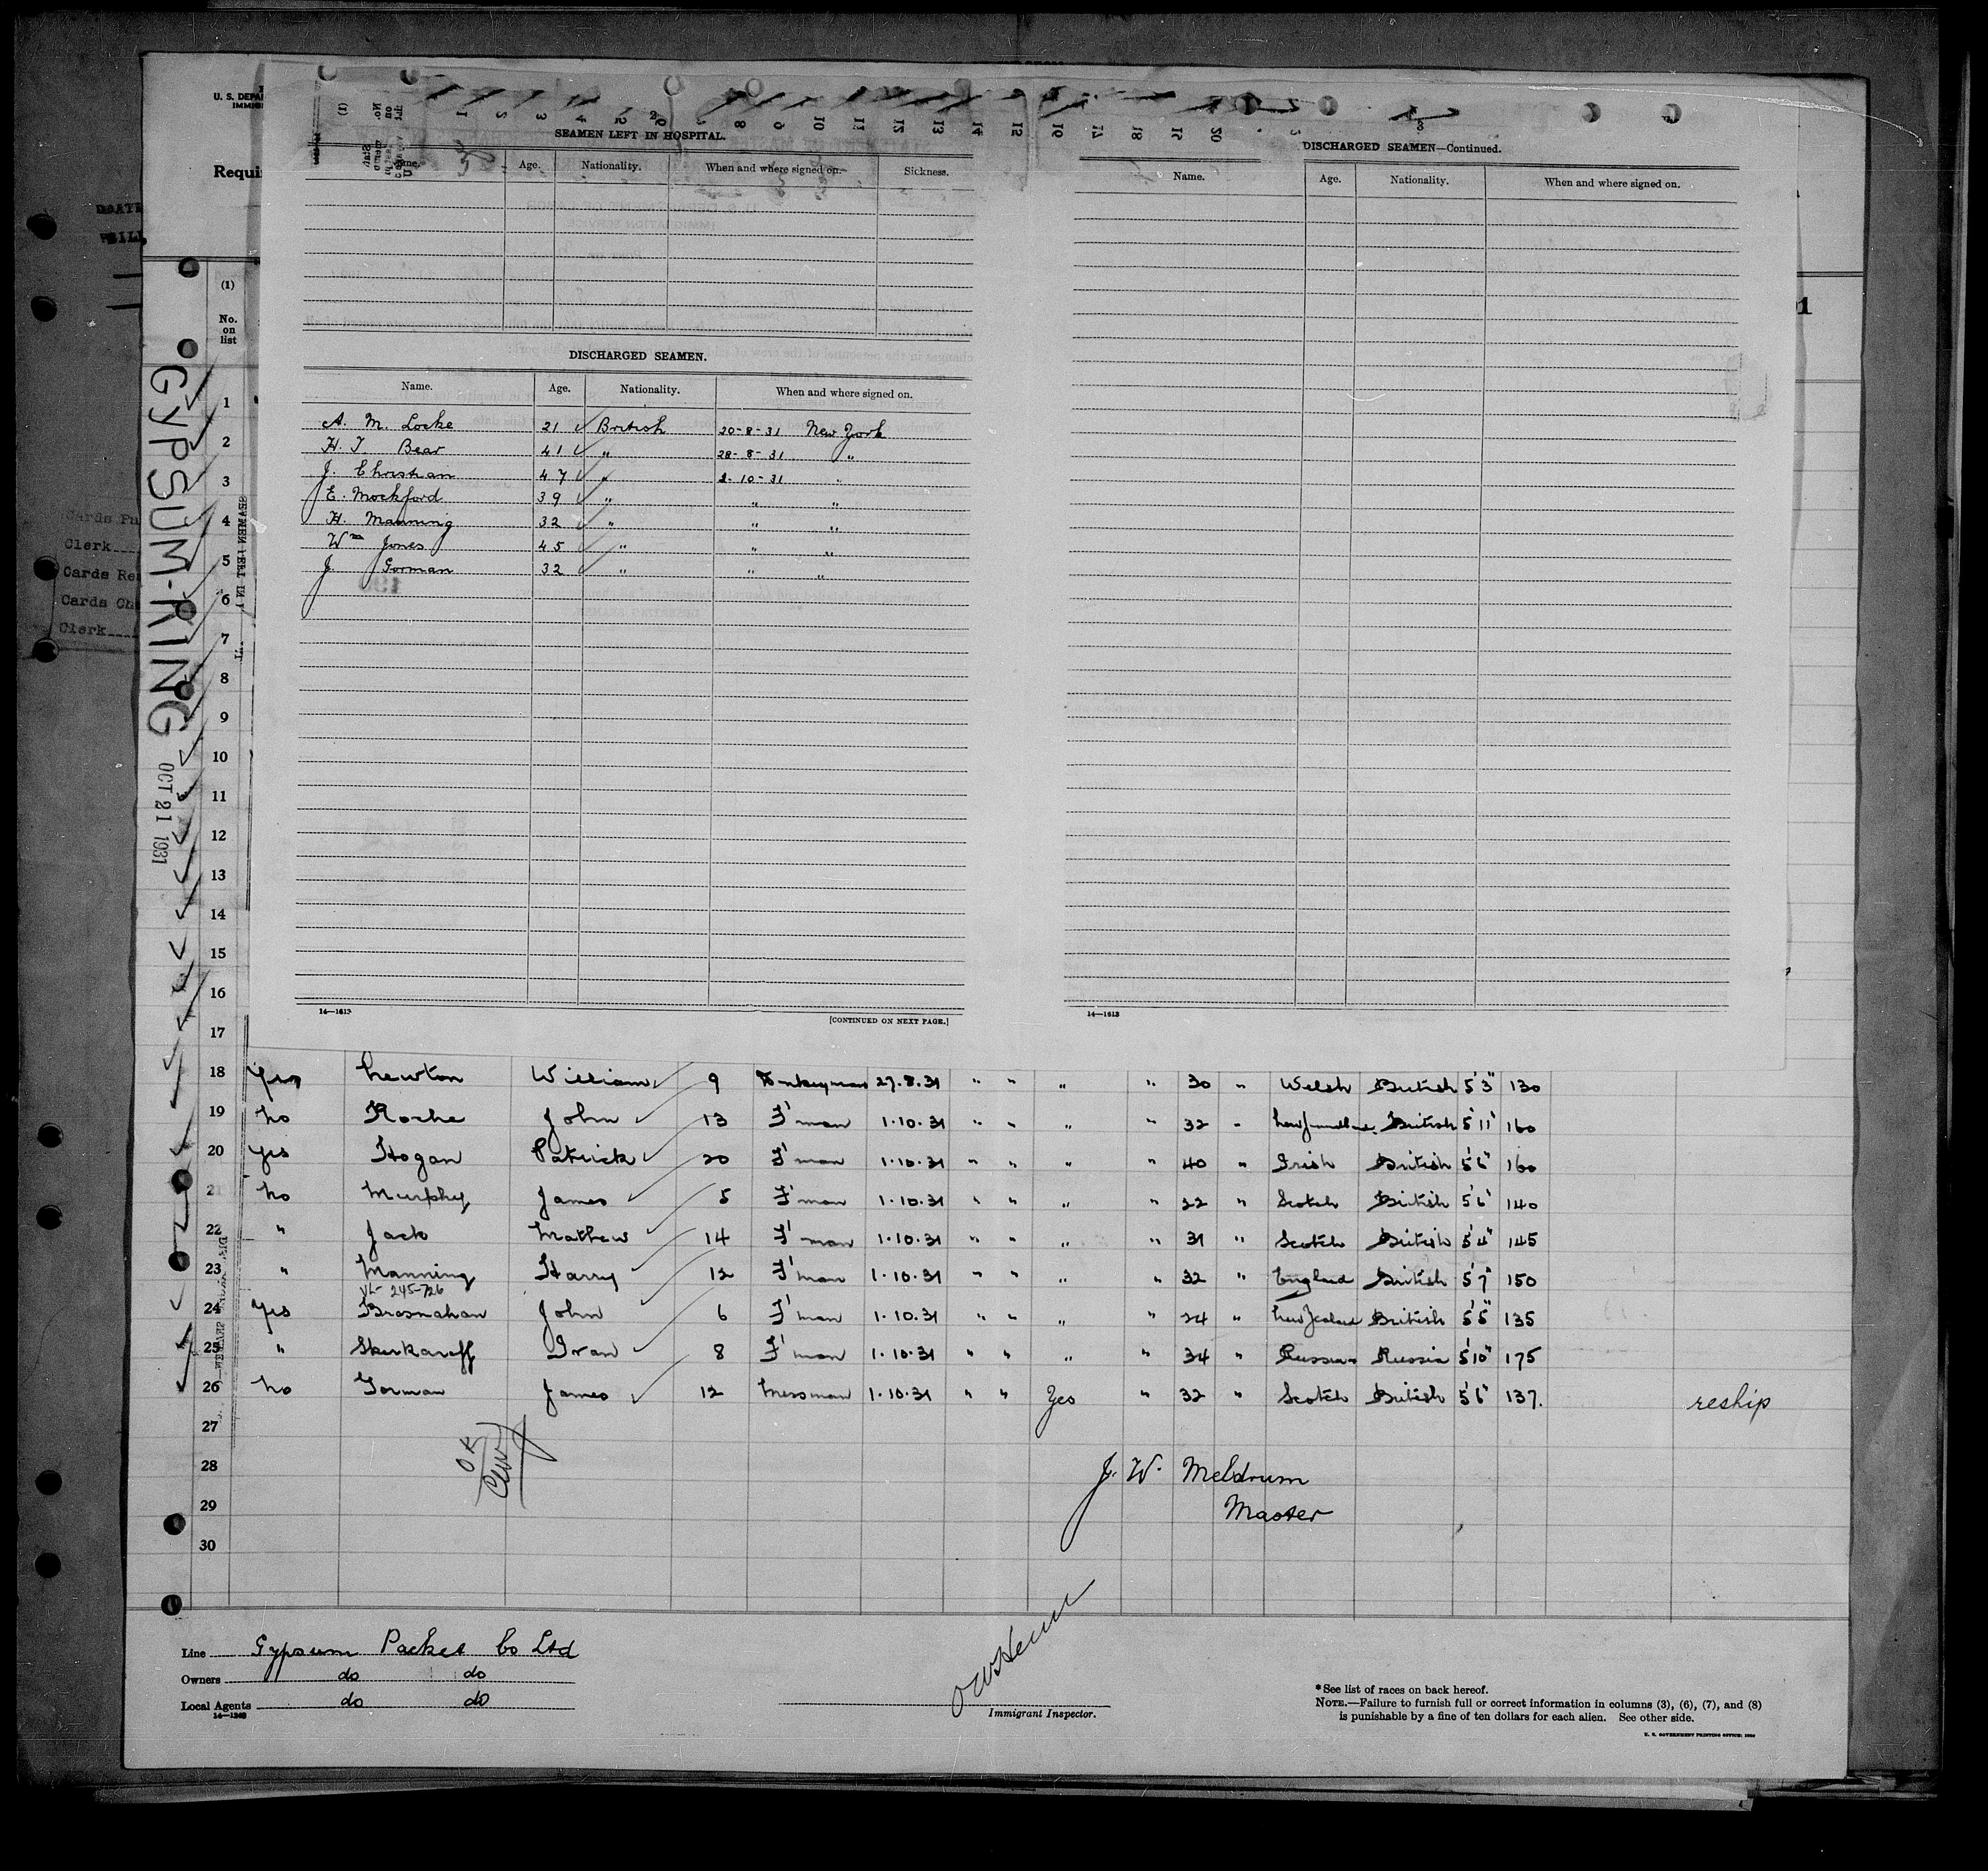 U. S. DEPA
IMMIG
Requi
SEAMEN LEFT IN HOSPITAL.
Name. Age. Nationality. When and where signed on. Sickness.
DISCHARGED SEAMEN—Continued.
Name. Age. Nationality. When and where signed on.
(1)
No. on list
GYPSUM-RING
OCT 21 1931
DISCHARGED SEAMEN.
Name. Age. Nationality. When and where signed on.
A. M. Locke 21 British 20-8-31 New York
H. T. Bear 41 " 28-8-31 "
J. Christian 47 " 2-10-31 "
E. Mockford 39 " " "
H. Manning 32 " " "
Wm Jones 45 " " "
J. Gorman 32 " " "
Cards Fu
Clerk
Cards Re
Cards Ch
Clerk
1
2
3
4
5
6
7
8
9
10
11
12
13
14
15
16
17
14—1613
[CONTINUED ON NEXT PAGE.]
14—1613
18 Yes Newton William 9 Donkeyman 27.8.31 " " " " 30 " Welsh British 5'3" 130
19 No Roche John 13 F'man 1.10.31 " " " " 32 " British 5'11" 160
20 Yes Hogan Patrick 20 F'man 1.10.31 " " " " 40 " Irish British 5'6" 160
21 No Murphy James 5 F'man 1.10.31 " " " " 22 " Scotch British 5'6" 140
22 " Jack Mathew 14 F'man 1.10.31 " " " " 31 " Scotch British 5'4" 145
23 " Manning Harry 12 F'man 1.10.31 " " " " 32 " England British 5'7" 150
245-726
24 Yes Brosnahan John 6 F'man 1.10.31 " " " " 24 " New Zealand British 5'5" 135
25 " Skurkaroff Ivan 8 F'man 1.10.31 " " " " 34 " Russian Russia 5'10" 175
26 No Gorman James 12 Messman 1.10.31 " " Yes " 32 " Scotch British 5'6" 137. reship
27
28
29
30
OK
J. W. Meldrum
Master
Line Gypsum Packet Co Ltd
Owners do do
Local Agents do do
14—1240
Immigrant Inspector.
* See list of races on back hereof.
NOTE.—Failure to furnish full or correct information in columns (3), (6), (7), and (8)
is punishable by a fine of ten dollars for each alien. See other side.
U. S. GOVERNMENT PRINTING OFFICE: